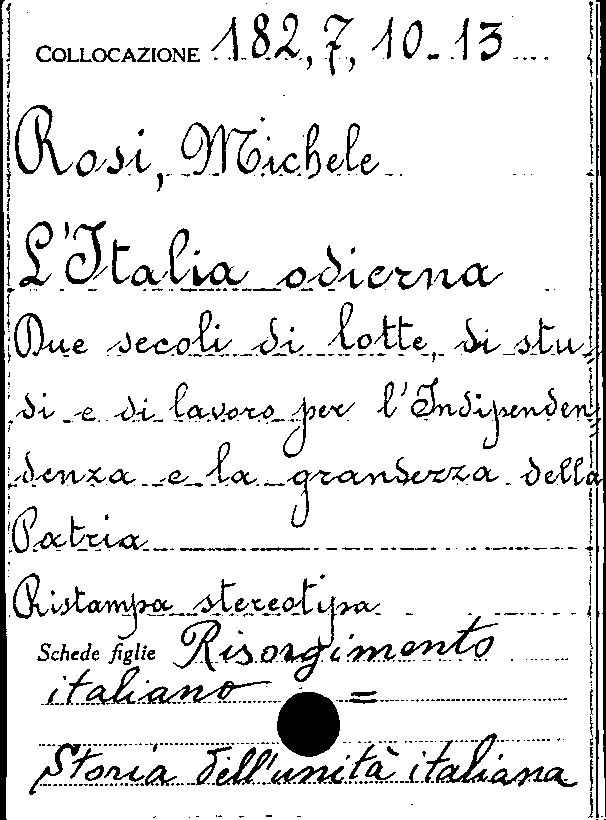 COLLOCAZIONE 182, 7, 10-13
Rosi, Michele
L'Italia odierna
Due secoli di lotte, di stu-
di e di lavoro per l'Indipenden-
denza e la grandezza della
Patria
Ristampa stereotipa
Schede figlie Risorgimento
italiano =
Storia dell'unità italiana